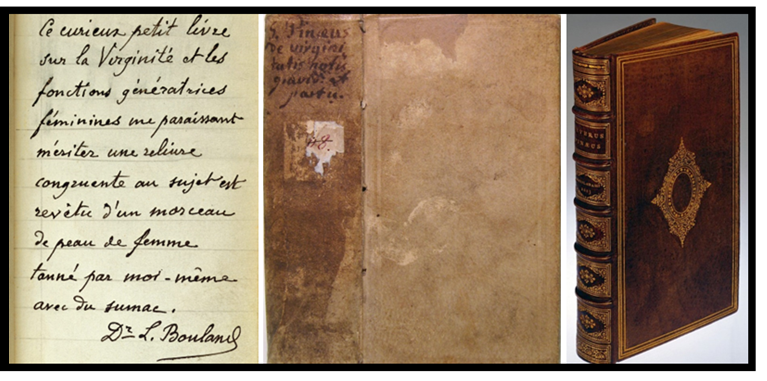 Ce curieux petit livre
sur la Virginité et les
fonctions génératrices
féminines me paraissant
mériter une reliure
congruente au sujet est
revêtu d'un morceau
de peau de femme
tanné par moi-même
avec du sumac.
Dr L. Bouland
de virgini
tatis notis
gravid. et
partu.